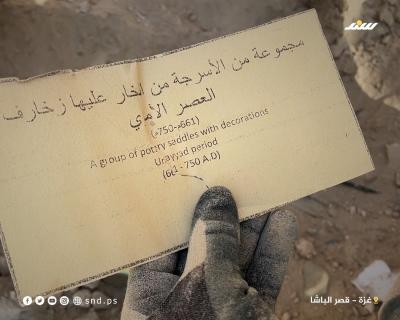 سند
مجموعة من الأسرجة من الفخار عليها زخارف
العصر الأموي
(661-750م)
A group of pottary saddles with decorations
Urayyad period
(661 - 750 A.D)
snd.ps
غزة - قصر الباشا